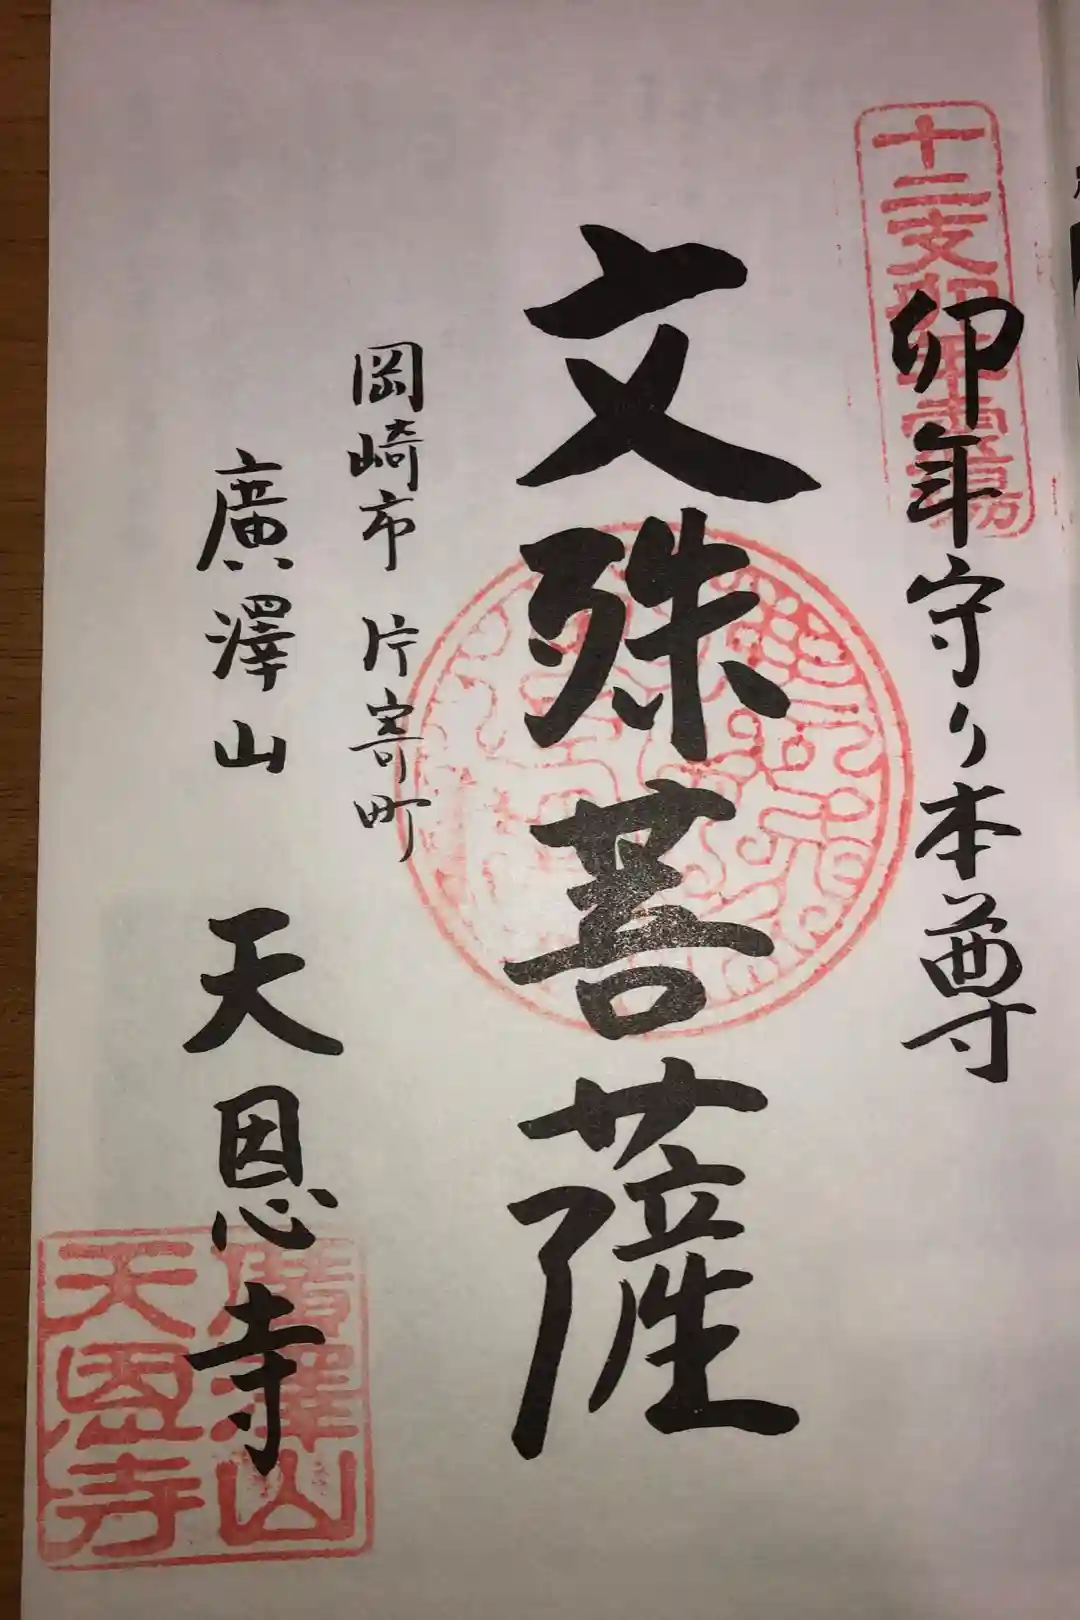 十二支卯年霊場
卯年守り本尊
文殊菩薩
岡崎市 片寄町
廣澤山 天恩寺
廣澤山
天恩寺